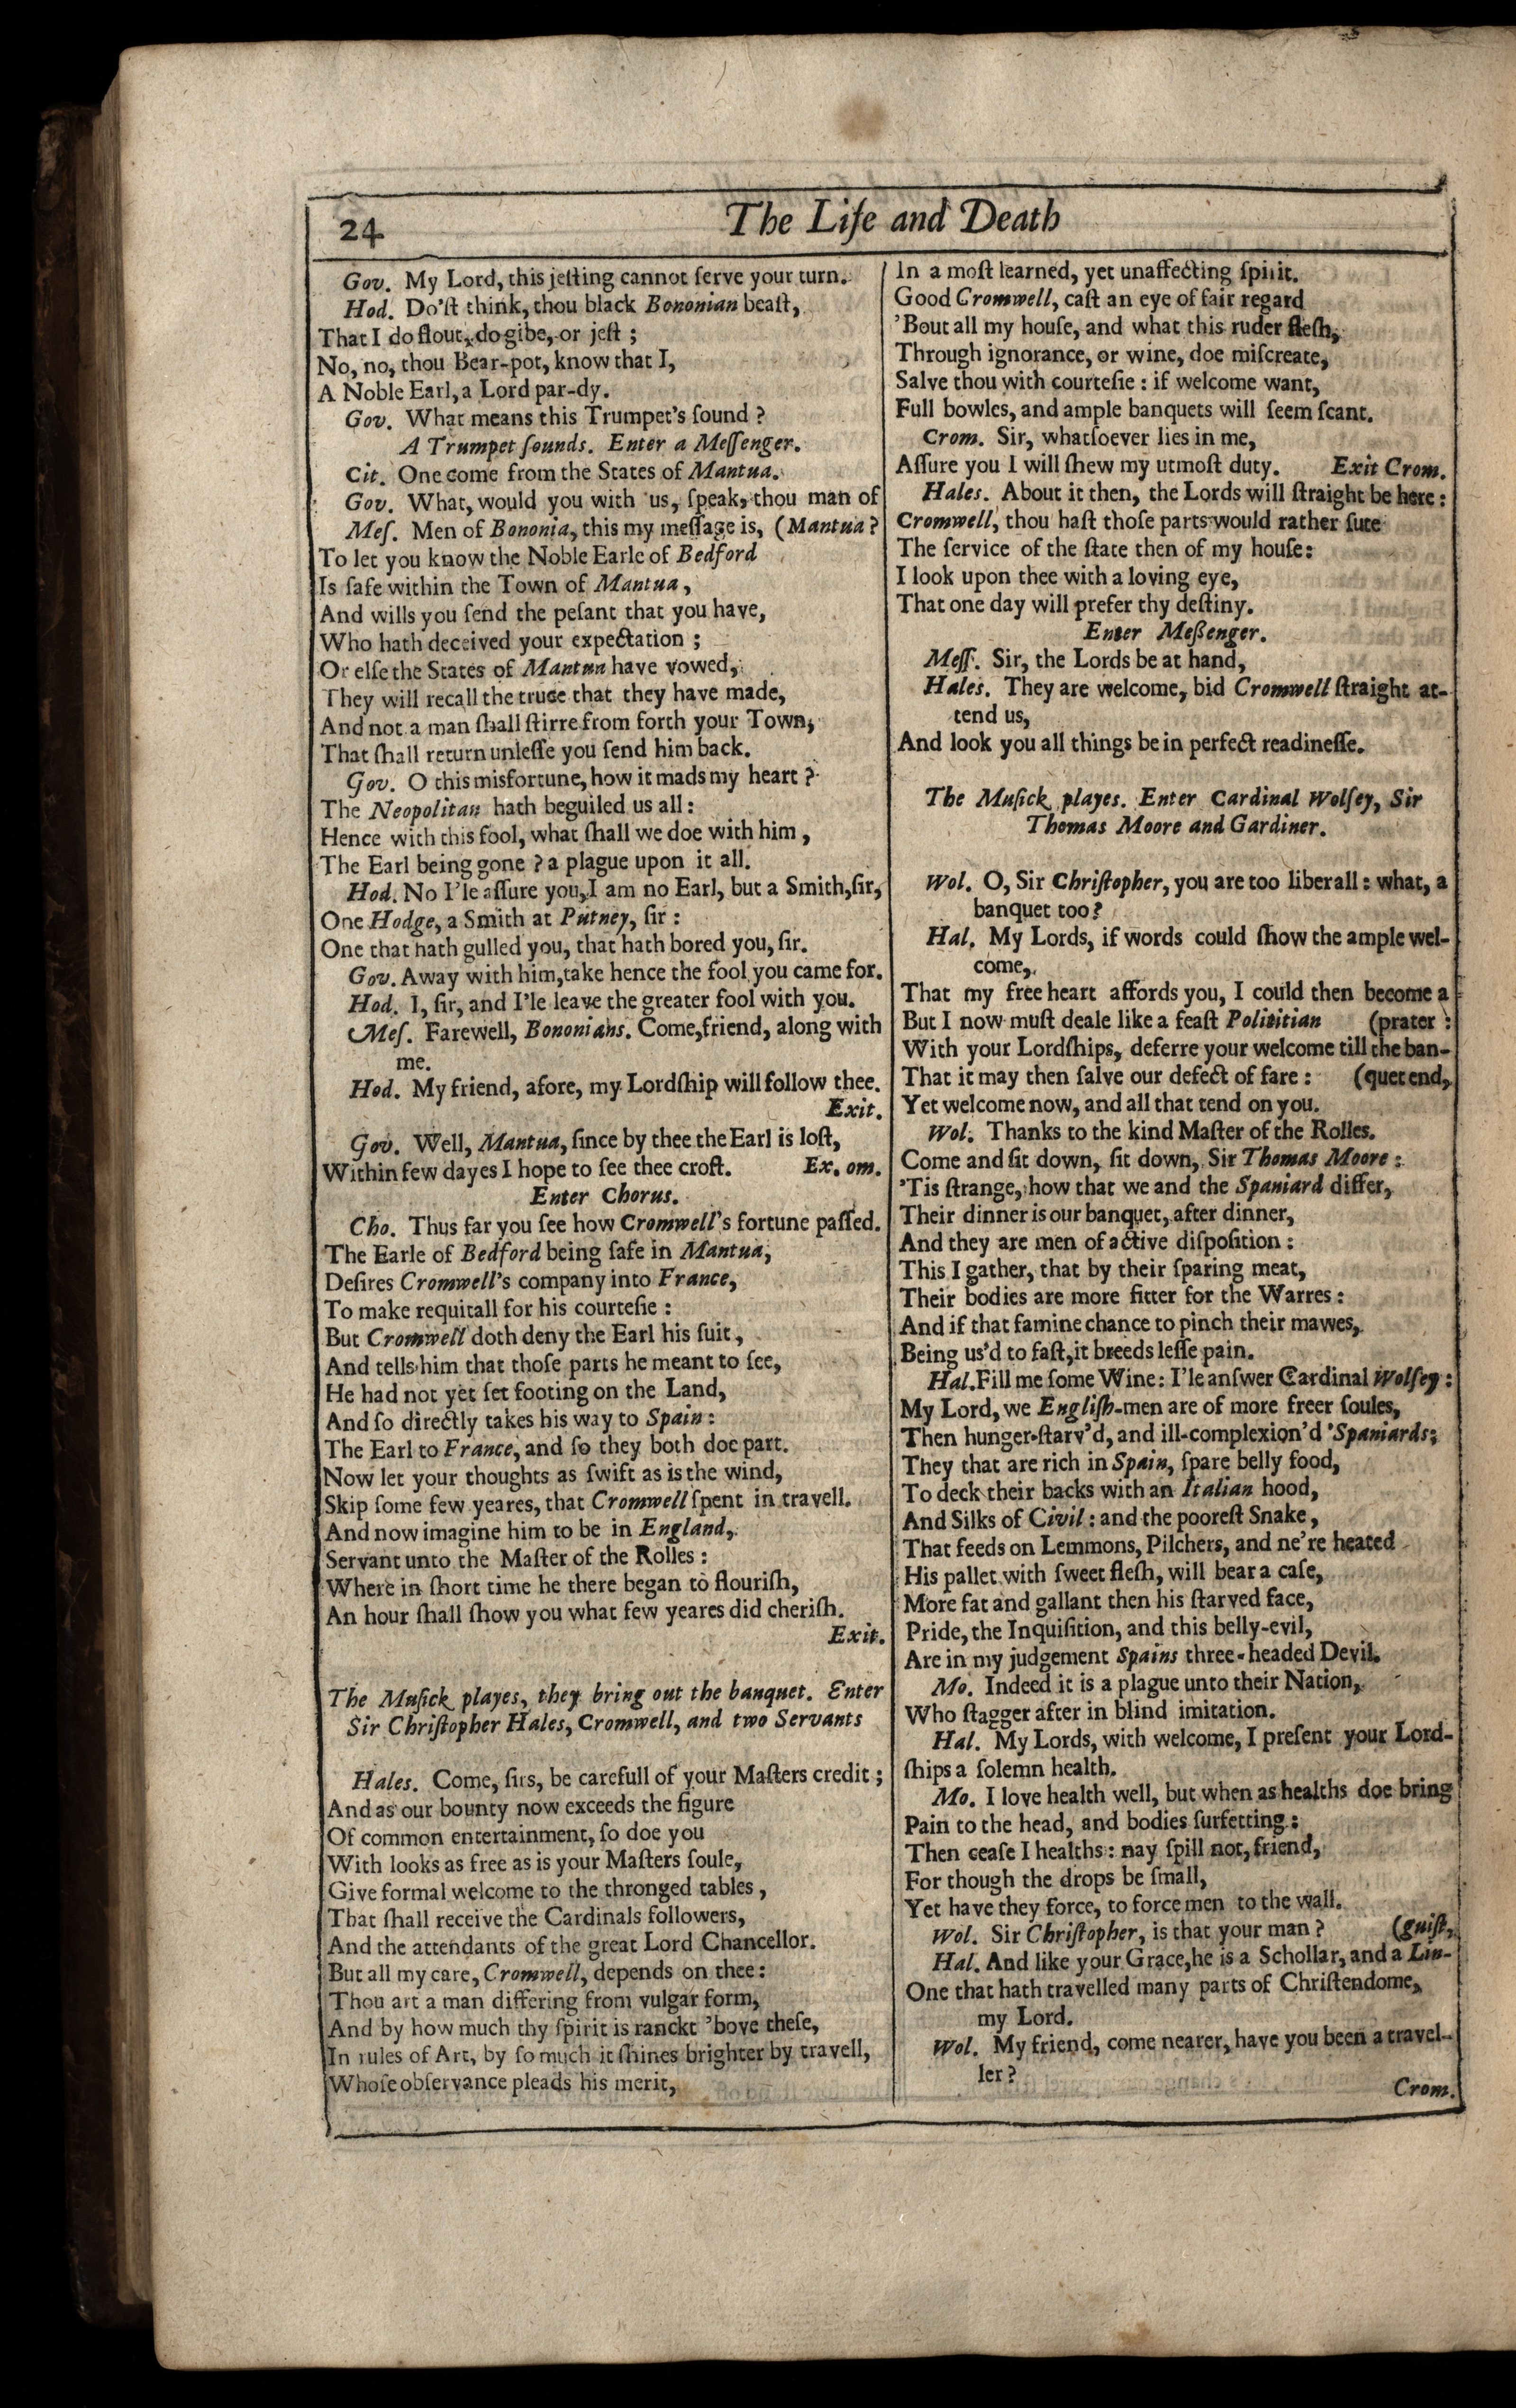 24
The Life and Death
Gov. My Lord, this jesting cannot ſerve your turn.
Hod. Do'ſt think, thou black Bononian beaſt,
That I do flout, do gibe, or jeſt ;
No, no, thou Bear-pot, know that I,
A Noble Earl, a Lord par-dy.
Gov. What means this Trumpet's ſound ?
A Trumpet ſounds. Enter a Meſſenger.
Cit. One come from the States of Mantua.
Gov. What, would you with us, ſpeak, thou man of
Meſ. Men of Bononia, this my meſſage is, (Mantua ?
To let you know the Noble Earle of Bedford
Is ſafe within the Town of Mantua,
And wills you ſend the peſant that you have,
Who hath deceived your expectation ;
Or elſe the States of Mantua have vowed,
They will recall the truce that they have made,
And not a man ſhall ſtirre from forth your Town,
That ſhall return unleſſe you ſend him back.
Gov. O this misfortune, how it mads my heart ?
The Neopolitan hath beguiled us all :
Hence with this fool, what ſhall we doe with him ,
The Earl being gone ? a plague upon it all.
Hod. No I'le aſſure you, I am no Earl, but a Smith, ſir,
One Hodge, a Smith at Putney, ſir :
One that hath gulled you, that hath bored you, ſir.
Gov. Away with him, take hence the fool you came for.
Hod. I, ſir, and I'le leave the greater fool with you.
Meſ. Farewell, Bononians. Come, friend, along with
me.
Hod. My friend, afore, my Lordſhip will follow thee.
Exit.
Gov. Well, Mantua, ſince by thee the Earl is loſt,
Within few dayes I hope to ſee thee croſt. Ex. om.
Enter Chorus.
Cho. Thus far you ſee how Cromwell's fortune paſſed.
The Earle of Bedford being ſafe in Mantua,
Deſires Cromwell's company into France,
To make requitall for his courteſie :
But Cromwell doth deny the Earl his ſuit,
And tells him that thoſe parts he meant to ſee,
He had not yet ſet footing on the Land,
And ſo directly takes his way to Spain :
The Earl to France, and ſo they both doe part.
Now let your thoughts as ſwift as is the wind,
Skip ſome few yeares, that Cromwell ſpent in travell.
And now imagine him to be in England,
Servant unto the Maſter of the Rolles :
Where in ſhort time he there began to flouriſh,
An hour ſhall ſhow you what few yeares did cheriſh.
Exit.
The Muſick playes, they bring out the banquet. Enter
Sir Chriſtopher Hales, Cromwell, and two Servants
Hales. Come, ſirs, be carefull of your Maſters credit ;
And as our bounty now exceeds the figure
Of common entertainment, ſo doe you
With looks as free as is your Maſters ſoule,
Give formal welcome to the thronged tables ,
That ſhall receive the Cardinals followers,
And the attendants of the great Lord Chancellor.
But all my care, Cromwell, depends on thee :
Thou art a man differing from vulgar form,
And by how much thy ſpirit is ranckt 'bove theſe,
In rules of Art, by ſo much it ſhines brighter by travell,
Whoſe obſervance pleads his merit,
In a moſt learned, yet unaffecting ſpirit.
Good Cromwell, caſt an eye of fair regard
'Bout all my houſe, and what this ruder fleſh,
Through ignorance, or wine, doe miſcreate,
Salve thou with courteſie : if welcome want,
Full bowles, and ample banquets will ſeem ſcant.
Crom. Sir, whatſoever lies in me,
Aſſure you I will ſhew my utmoſt duty. Exit Crom.
Hales. About it then, the Lords will ſtraight be here :
Cromwell, thou haſt thoſe parts would rather ſute
The ſervice of the ſtate then of my houſe :
I look upon thee with a loving eye,
That one day will prefer thy deſtiny.
Enter Meßenger.
Meſſ. Sir, the Lords be at hand,
Hales. They are welcome, bid Cromwell ſtraight at-
tend us,
And look you all things be in perfect readineſſe.
The Muſick playes. Enter Cardinal Wolſey, Sir
Thomas Moore and Gardiner.
Wol. O, Sir Chriſtopher, you are too liberall : what, a
banquet too ?
Hal. My Lords, if words could ſhow the ample wel-
come,
That my free heart affords you, I could then become a
But I now muſt deale like a feaſt Polititian (prater :
With your Lordſhips, deferre your welcome till the ban-
That it may then ſalve our defect of fare : (quet end,
Yet welcome now, and all that tend on you.
Wol. Thanks to the kind Maſter of the Rolles.
Come and ſit down, ſit down, Sir Thomas Moore :
'Tis ſtrange, how that we and the Spaniard differ,
Their dinner is our banquet, after dinner,
And they are men of active diſpoſition :
This I gather, that by their ſparing meat,
Their bodies are more fitter for the Warres :
And if that famine chance to pinch their mawes,
Being us'd to faſt, it breeds leſſe pain.
Hal. Fill me ſome Wine : I'le anſwer Cardinal Wolſey :
My Lord, we Engliſh-men are of more freer ſoules,
Then hunger-ſtarv'd, and ill-complexion'd 'Spaniards ;
They that are rich in Spain, ſpare belly food,
To deck their backs with an Italian hood,
And Silks of Civil : and the pooreſt Snake,
That feeds on Lemmons, Pilchers, and ne're heated
His pallet with ſweet fleſh, will bear a caſe,
More fat and gallant then his ſtarved face,
Pride, the Inquiſition, and this belly-evil,
Are in my judgement Spains three-headed Devil.
Mo. Indeed it is a plague unto their Nation,
Who ſtagger after in blind imitation.
Hal. My Lords, with welcome, I preſent your Lord-
ſhips a ſolemn health.
Mo. I love health well, but when as healths doe bring
Pain to the head, and bodies ſurfetting :
Then ceaſe I healths : nay ſpill not, friend,
For though the drops be ſmall,
Yet have they force, to force men to the wall.
Wol. Sir Chriſtopher, is that your man ? (guiſt,
Hal. And like your Grace, he is a Schollar, and a Lin-
One that hath travelled many parts of Chriſtendome,
my Lord.
Wol. My friend, come nearer, have you been a travel-
ler ?
Crom.